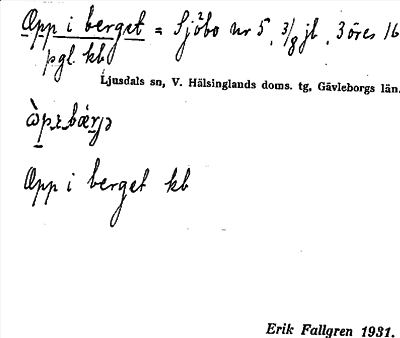 Opp i berget = Sjöbo nr 5, 3/8 jb, 3 öres 16
pgl. kb
Ljusdals sn, V. Hälsinglands doms. tg, Gävleborgs län.
Opp i berget kb
Erik Fallgren 1931.